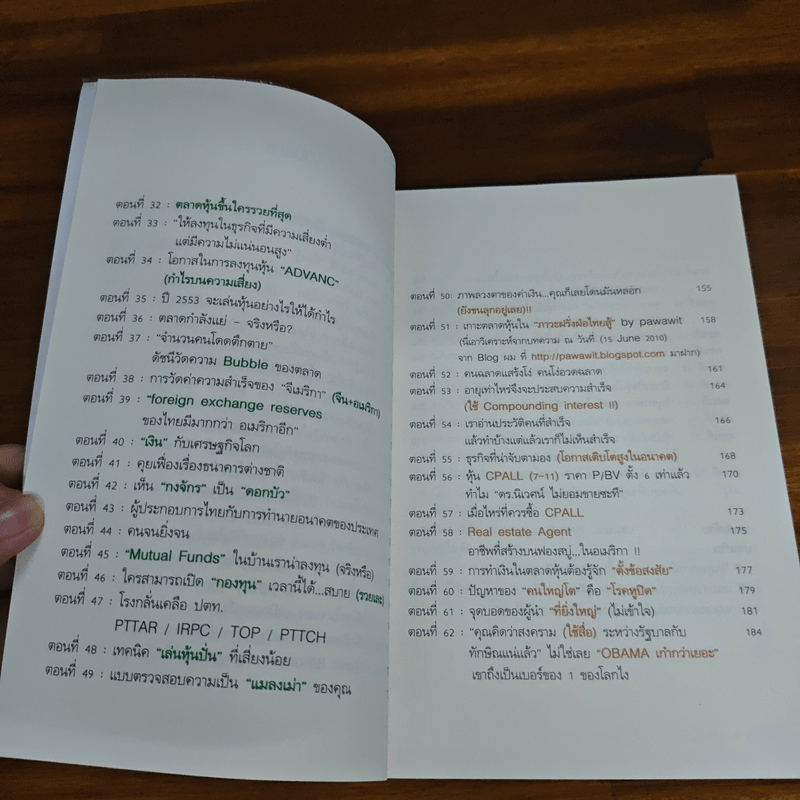 ตอนที่ 32 : ตลาดหุ้นขึ้นใครรวยที่สุด
ตอนที่ 33 : "ให้ลงทุนในธุรกิจที่มีความเสี่ยงต่ำ
แต่มีความไม่แน่นอนสูง"
ตอนที่ 34 : โอกาสในการลงทุนหุ้น "ADVANC"
(กำไรบนความเสี่ยง)
ตอนที่ 35 : ปี 2553 จะเล่นหุ้นอย่างไรให้ได้กำไร
ตอนที่ 36 : ตลาดกำลังแย่ - จริงหรือ?
ตอนที่ 37 : "จำนวนคนโดดตึกตาย"
ดัชนีวัดความ Bubble ของตลาด
ตอนที่ 38 : การวัดค่าความสำเร็จของ "จีเมริกา" (จีน+อเมริกา)
ตอนที่ 39 : "foreign exchange reserves
ของไทยมีมากกว่า อเมริกาอีก"
ตอนที่ 40 : "เงิน" กับเศรษฐกิจโลก
ตอนที่ 41 : คุยเฟื่องเรื่องธนาคารต่างชาติ
ตอนที่ 42 : เห็น "กงจักร" เป็น "ดอกบัว"
ตอนที่ 43 : ผู้ประกอบการไทยกับการทำนายอนาคตของประเทศ
ตอนที่ 44 : คนจนยิ่งจน
ตอนที่ 45 : "Mutual Funds" ในบ้านเราน่าลงทุน (จริงหรือ)
ตอนที่ 46 : ใครสามารถเปิด "กองทุน" เวลานี้ได้...สบาย (รวยเละ)
ตอนที่ 47 : โรงกลั่นเครือ ปตท.
PTTAR / IRPC / TOP / PTTCH
ตอนที่ 48 : เทคนิค "เล่นหุ้นปั่น" ที่เสี่ยงน้อย
ตอนที่ 49 : แบบตรวจสอบความเป็น "แมลงเม่า" ของคุณ
ตอนที่ 50: ภาพลวงตาของค่าเงิน...คุณก็เลยโดนมันหลอก 155
(ยังขนลุกอยู่เลย)!!
ตอนที่ 51 : เกาะตลาดหุ้นใน "ภาวะฝรั่งฝ่อไทยสู้" by pawawit 158
(นี่เอาวิเคราะห์จากบทความ ณ วันที่ (15 June 2010)
จาก Blog ผม ที่ http://pawawit.blogspot.com มาฝาก)
ตอนที่ 52 : คนฉลาดแสร้งโง่ คนโง่อวดฉลาด 161
ตอนที่ 53 : อายุเท่าไหร่จึงจะประสบความสำเร็จ 164
(ใช้ Compounding interest !!)
ตอนที่ 54 : เราอ่านประวัติคนที่สำเร็จ 166
แล้วทำบ้างแต่แล้วเราก็ไม่เห็นสำเร็จ
ตอนที่ 55 : ธุรกิจที่น่าจับตามอง (โอกาสเติบโตสูงในอนาคต) 168
ตอนที่ 56 : หุ้น CPALL (7-11) ราคา P/BV ตั้ง 6 เท่าแล้ว 170
ทำไม "ดร.นิเวศน์ ไม่ยอมขายซะที"
ตอนที่ 57 : เมื่อไหร่ที่ควรซื้อ CPALL 173
ตอนที่ 58 : Real estate Agent 175
อาชีพที่สร้างบนฟองสบู่...ในอเมริกา !!
ตอนที่ 59 : การทำเงินในตลาดหุ้นต้องรู้จัก "ตั้งข้อสงสัย" 177
ตอนที่ 60 : ปัญหาของ "คนใหญ่โต" คือ "โรคหูปิด" 179
ตอนที่ 61 : จุดบอดของผู้นำ "ที่ยิ่งใหญ่" (ไม่เข้าใจ) 181
ตอนที่ 62 : "คุณคิดว่าสงคราม (ใช้สื่อ) ระหว่างรัฐบาลกับ 184
ทักษิณแน่แล้ว" ไม่ใช่เลย "OBAMA เก๋ากว่าเยอะ"
เขาถึงเป็นเบอร์ของ 1 ของโลกไง